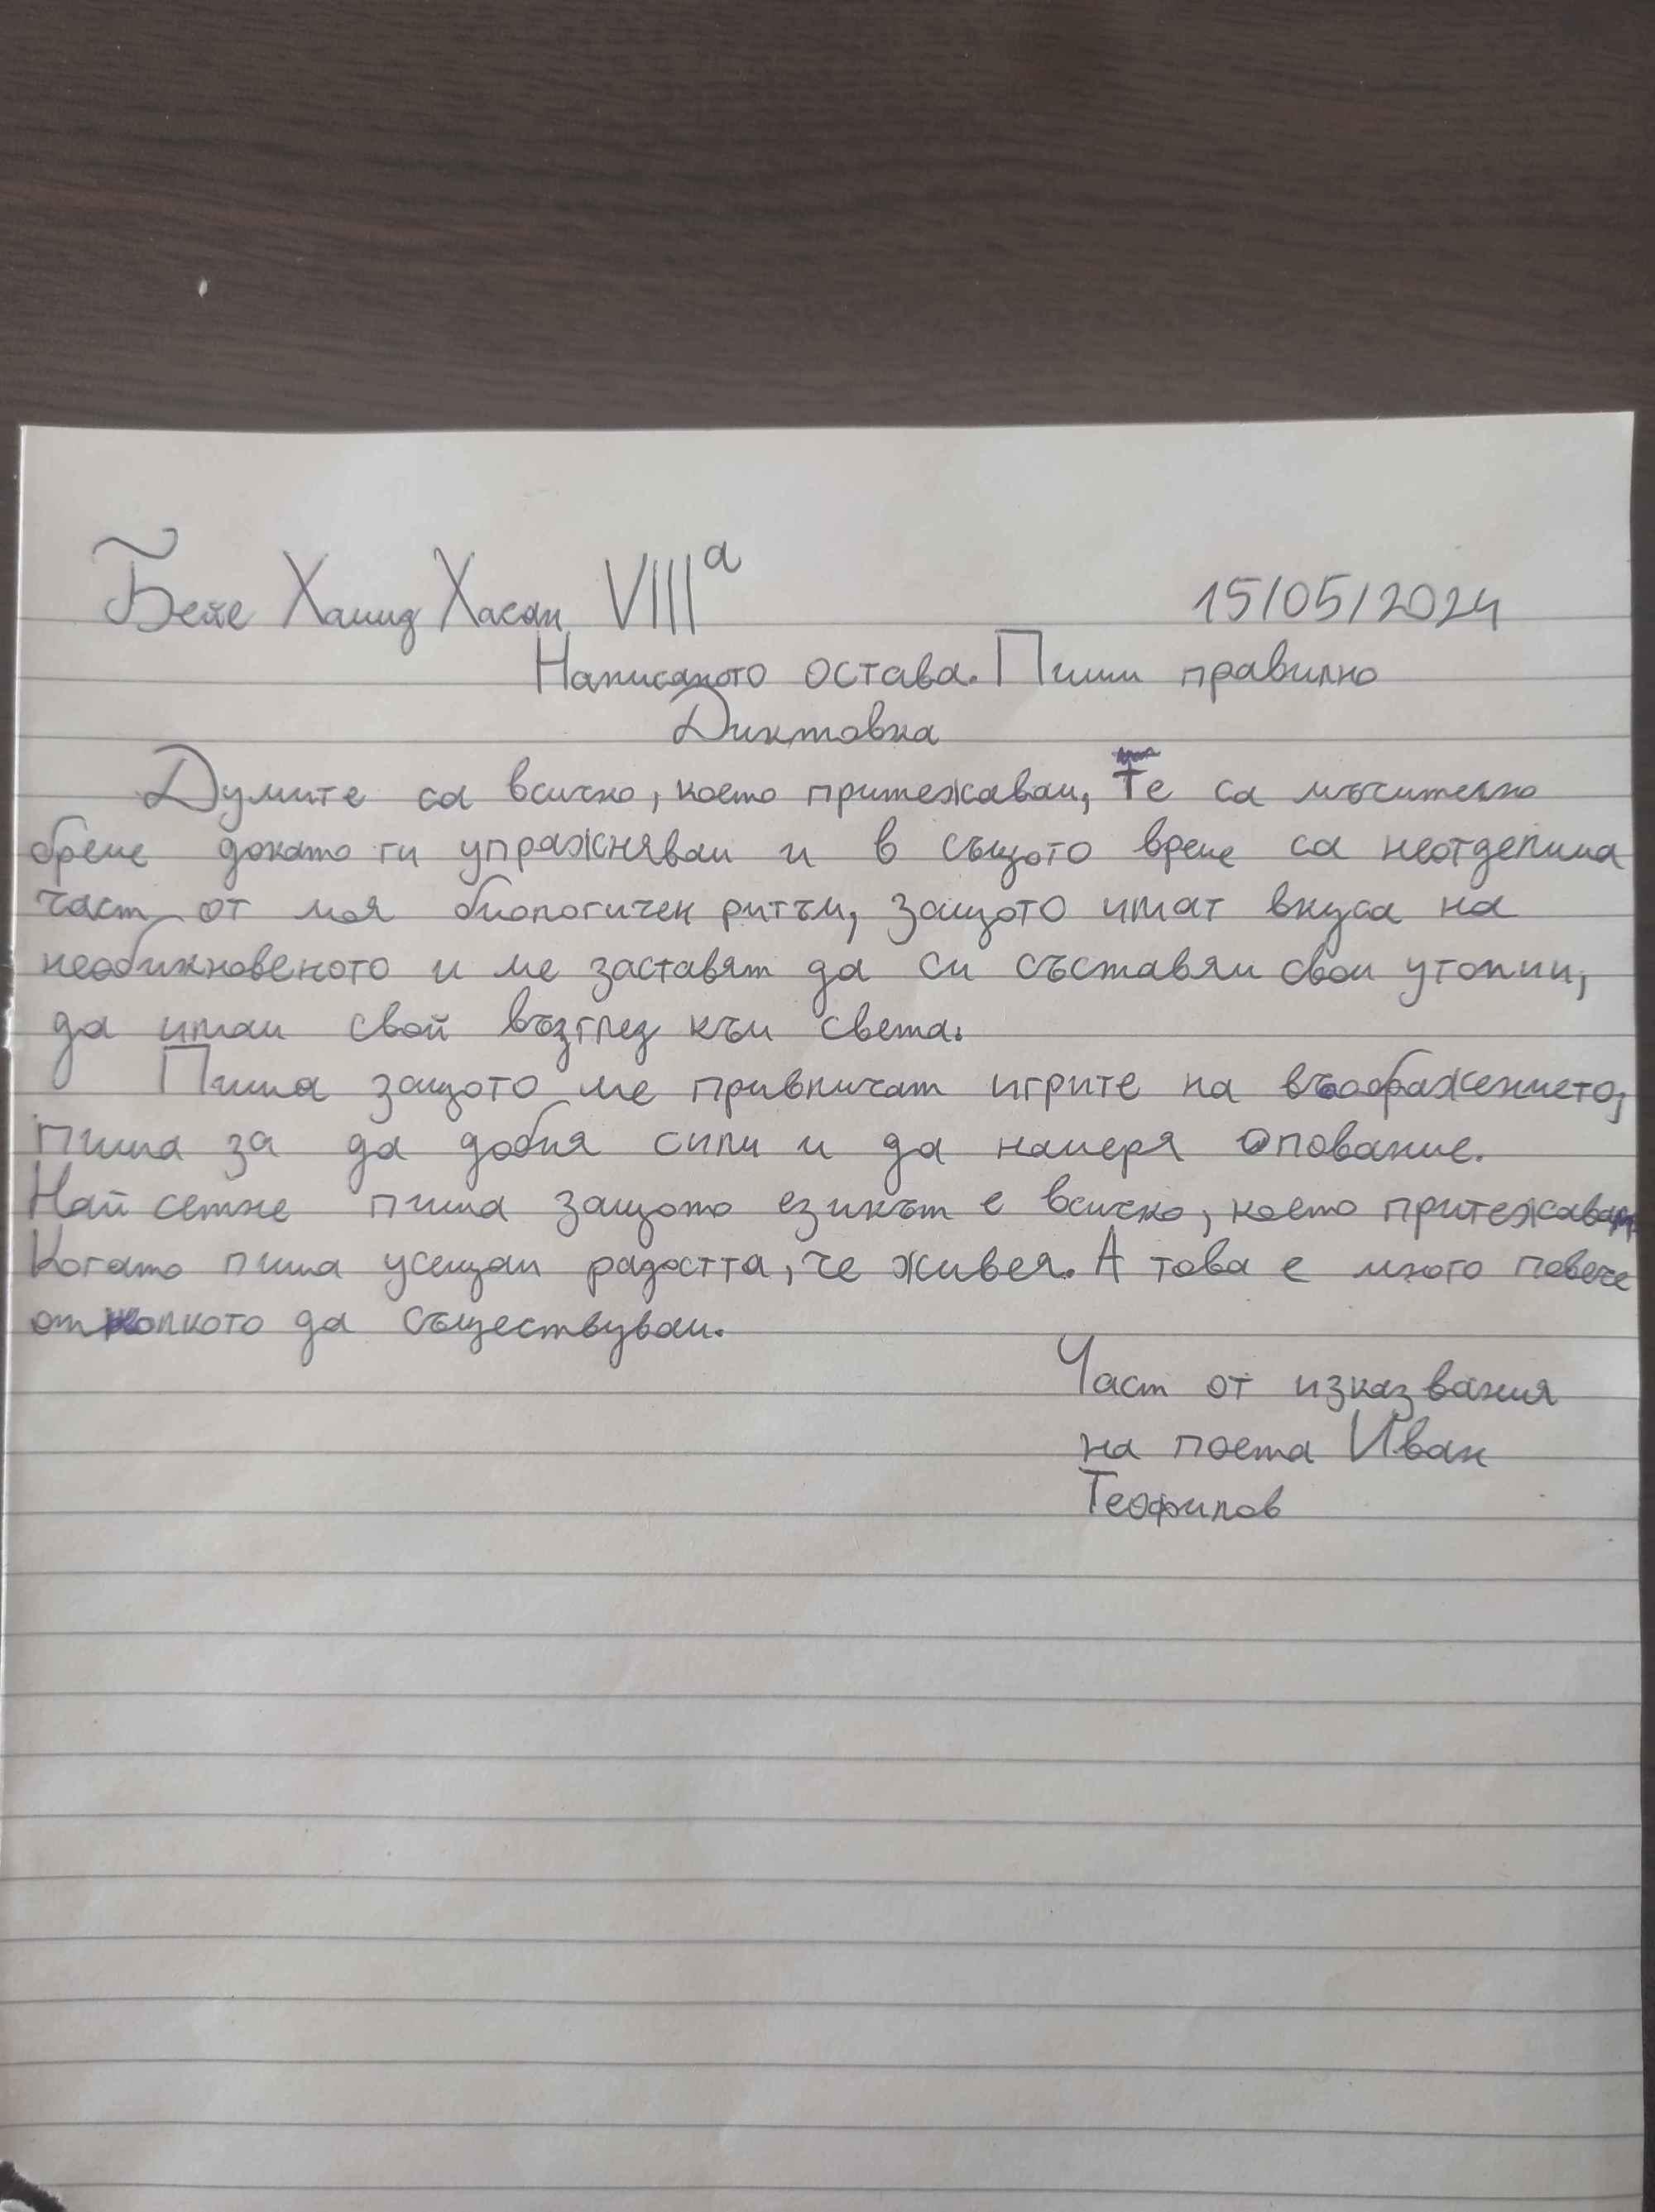 Беñе Хамид Хасан VIII а 15/05/2024
Написаното остава. Пиши правилно
Диктовка
Думите са всичко, което притежавам, Те са мъчително
бреме докато ги упражнявам и в същото време са неотделима
част от моя биологичен ритъм, защото имат вкуса на
необикновеното и ме заставят да си съставям свои утопии,
да имам свой възглед към света.
Пиша защото ме привличат игрите на въображението,
пиша за да добия сили и да намеря опование.
Най сетне пиша защото езикът е всичко, което притежавам
Когато пиша усещам радостта, че живея. А това е много повече
отколкото да съществувам.
Част от изказвания
на поета Иван
Теофилов